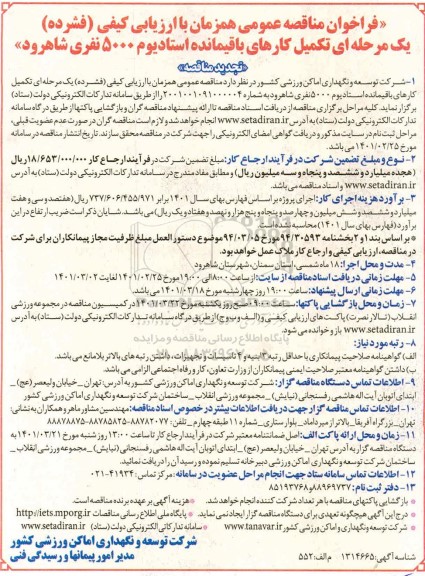 «فراخوان مناقصه عمومی همزمان با ارزیابی کیفی (فشرده)
یک مرحله ای تکمیل کارهای باقیمانده استادیوم ۵۰۰۰ نفری شاهرود»
«تجدید مناقصه»
۱-شرکت توسعه و نگهداری اماکن ورزشی کشور در نظر دارد مناقصه عمومی همزمان با ارزیابی کیفی (فشرده) یک مرحله ای تکمیل
کارهای باقیمانده استادیوم ۵۰۰۰ نفری شاهرود به شماره ۲۰۰۱۰۰۱۰۹۱۰۰۰۰۰۴ را از طریق سامانه تدارکات الکترونیکی دولت (ستاد)
برگزار نماید. کلیه مراحل برگزاری مناقصه از دریافت اسناد مناقصه تا ارائه پیشنهاد مناقصه گران و بازگشایی پاکتها از طریق درگاه سامانه
تدارکات الکترونیکی دولت (ستاد) به آدرس www.setadiran.ir انجام خواهد شد و لازم است مناقصه گران در صورت عدم عضویت قبلی،
مراحل ثبت نام در سایت مذکور و دریافت گواهی امضای الکترونیکی را جهت شرکت در مناقصه محقق سازند. تاریخ انتشار مناقصه در سامانه
مورخ ۱۴۰۱/۰۲/۲۵ می باشد.
۲- نوع و مبلغ تضمین شرکت در فرآیند ارجاع کار: مبلغ تضمین شرکت در فرآیند ارجاع کار ۱۸/۶۵۳/۰۰۰/۰۰۰ ریال
(هجده میلیارد و ششصد و پنجاه و سه میلیون ریال) و مطابق مفاد مندرج در سامانه تدارکات الکترونیکی دولت (ستاد) به آدرس
www.setadiran.ir و اسناد مناقصه می باشد.
۳- برآورد هزینه اجرای کار: اجرای پروژه بر اساس فهارس بهای سال ۱۴۰۱ برابر ۷۳۷/۶۰۶/۴۵۵/۹۷۱ ریال (هفتصد و سی و هفت
میلیارد و ششصد و شش میلیون و چهارصد و پنجاه و پنج هزار و نهصد و هفتاد و یک ریال) می باشد. شایان ذکر است ضریب ارتفاع در این
برآورد (فهارس بهای سال ۱۴۰۱) محاسبه شده است.
* بر اساس بند ۱ و ۲ بخشنامه ۹۴/۳۰۵۹۳ مورخ ۹۴/۰۳/۰۵ موضوع دستورالعمل مبلغ ظرفیت مجاز پیمانکاران برای شرکت
در مناقصه، ارزیابی کیفی و ارجاع کار ملاک عمل خواهد بود.
۴- مدت و محل اجرا: ۱۸ ماه شمسی، استان سمنان، شهرستان شاهرود
۵- مهلت زمانی دریافت اسناد مناقصه از سایت: از ساعت ۸:۰۰ الی ۱۹:۰۰ مورخ ۱۴۰۱/۰۲/۲۵ لغایت ۱۴۰۱/۰۳/۰۲
۶- مهلت زمانی ارسال پیشنهاد: ساعت ۱۹:۰۰ روز چهارشنبه مورخ ۱۴۰۱/۰۳/۱۸ می باشد.
۷- زمان و محل بازگشایی پاکتها: ساعت ۹:۰۰ صبح روز یکشنبه مورخ ۱۴۰۱/۰۳/۲۲ در کمیسیون مناقصه در مجموعه ورزشی
انقلاب (تالار نصرت) پاکت های ارزیابی کیفی و (الف و ب و ج) از طریق درگاه سامانه تدارکات الکترونیکی دولت (ستاد) به آدرس
www.setadiran.ir باز و خوانده می شود.
۸- رتبه مورد نیاز:
الف) گواهینامه صلاحیت پیمانکاری با حداقل رتبه ۳ ابنیه و ۴ تاسیسات و تجهیزات، داشتن رتبه های بالاتر بلامانع می باشد.
ب) داشتن گواهینامه معتبر صلاحیت ایمنی پیمانکاران از وزارت تعاون، کار و رفاه اجتماعی الزامی می باشد.
۹- اطلاعات تماس دستگاه مناقصه گزار: شرکت توسعه و نگهداری اماکن ورزشی کشور به آدرس: تهران _ خیابان ولیعصر (عج) _
ابتدای اتوبان آیت اله هاشمی رفسنجانی (نیایش) _ مجموعه ورزشی انقلاب _ ساختمان شرکت توسعه و نگهداری اماکن ورزشی کشور
۱۰- اطلاعات تماس مناقصه گزار جهت دریافت اطلاعات بیشتر در خصوص اسناد مناقصه: مهندسین مشاور ماهر و همکاران به نشانی:
تهران _ بزرگراه آفریقا _ بالاتر از میرداماد _ بلوار ستاری _ شماره ۱۱ طبقه چهارم _ تلفن: ۸۸۷۸۲۰۷۷-۸۸۷۸۵۸۲۵-۸۸۸۷۸۸۷۵
۱۱- زمان و محل ارائه پاکت الف: اصل ضمانتنامه معتبر شرکت در فرآیند ارجاع کار تا ساعت ۱۳:۰۰ روز شنبه مورخ ۱۴۰۱/۰۳/۲۱ به
دستگاه مناقصه گزار به آدرس تهران _ خیابان ولیعصر (عج) _ ابتدای اتوبان آیت اله هاشمی رفسنجانی (نیایش) _ مجموعه ورزشی انقلاب _
ساختمان شرکت توسعه و نگهداری اماکن ورزشی دبیرخانه تسلیم نموده و رسید آن را دریافت نمائید.
۱۲- اطلاعات تماس سامانه ستاد جهت انجام مراحل عضویت در سامانه: مرکز تماس: ۴۱۹۳۴-۰۲۱
۱۳- دفتر ثبت نام: ۸۸۹۶۹۷۳۷ و ۸۵۱۹۳۷۶۸
* بازگشایی پاکتهای مناقصه با هر تعداد شرکت کننده انجام خواهد شد.
* هزینه آگهی بر عهده برنده مناقصه است.
* درج این آگهی هیچگونه تعهدی برای دستگاه مناقصه گزار ایجاد نمی نماید.
* پایگاه ملی اطلاع رسانی مناقصات http://iets.mporg.ir
* شرکت توسعه و نگهداری اماکن ورزشی کشور www.tanavar.ir
* سامانه تدارکاتی الکترونیکی دولت (ستاد) www.setadiran.ir
شرکت توسعه و نگهداری اماکن ورزشی کشور
مدیر امور پیمانها و رسیدگی فنی
شناسه آگهی: ۱۳۱۴۶۶۵ م الف: ۵۵۲